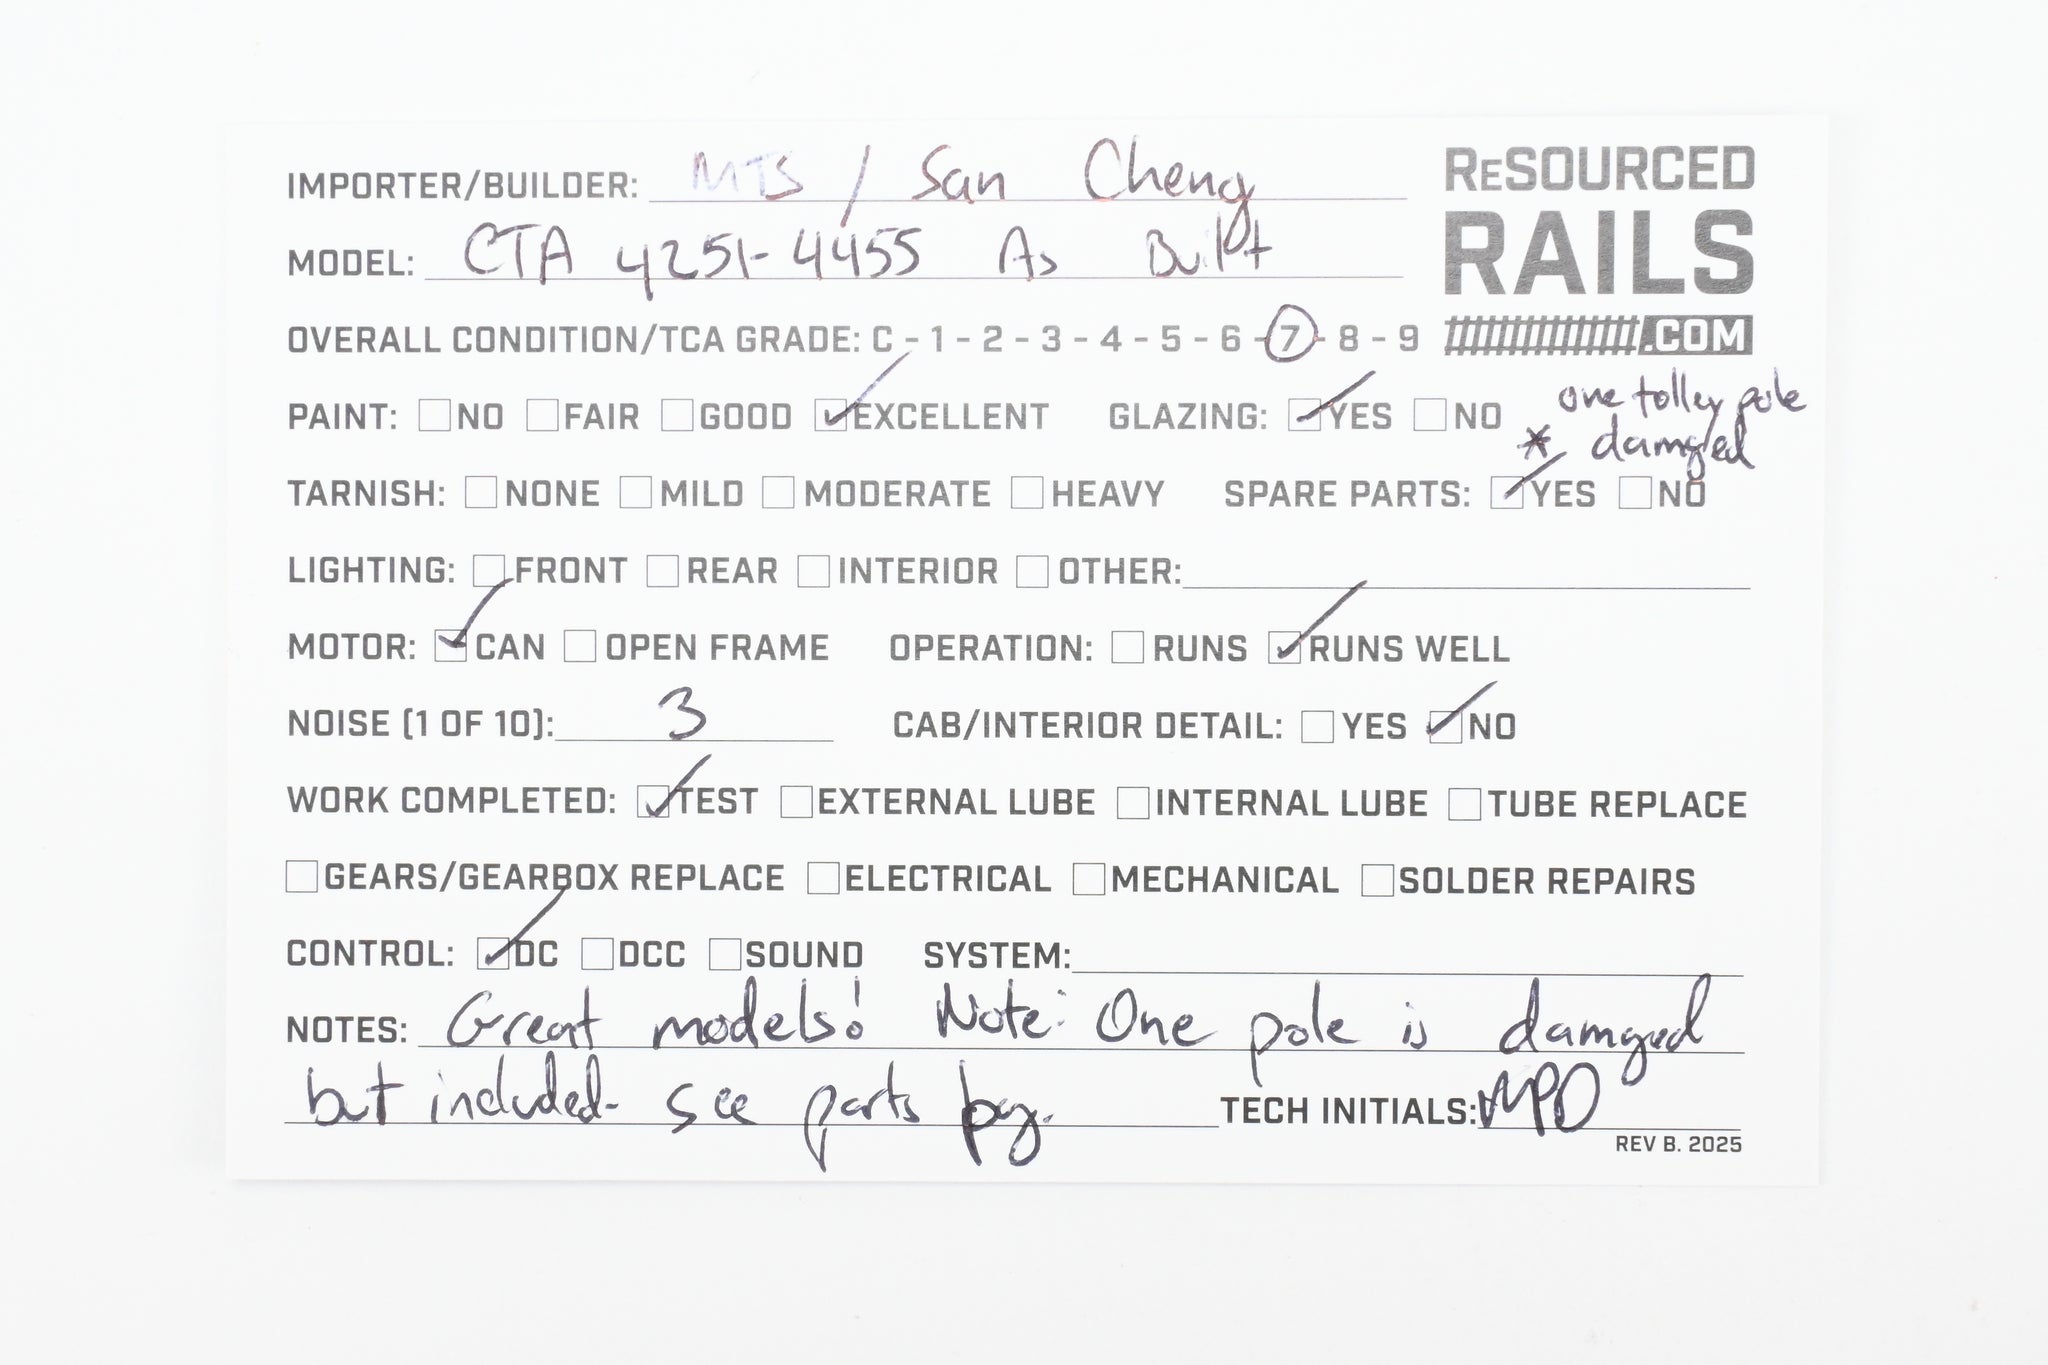 IMPORTER/BUILDER: MTS / San Cheng
ReSOURCED
RAILS
.COM
MODEL: CTA 4251-4455 As Built
OVERALL CONDITION/TCA GRADE: C - 1 - 2 - 3 - 4 - 5 - 6 - 7 - 8 - 9
PAINT: NO FAIR GOOD EXCELLENT GLAZING: YES NO
one tolley pole
* damged
TARNISH: NONE MILD MODERATE HEAVY SPARE PARTS: YES NO
LIGHTING: FRONT REAR INTERIOR OTHER:
MOTOR: CAN OPEN FRAME OPERATION: RUNS RUNS WELL
NOISE (1 OF 10): 3 CAB/INTERIOR DETAIL: YES NO
WORK COMPLETED: TEST EXTERNAL LUBE INTERNAL LUBE TUBE REPLACE
GEARS/GEARBOX REPLACE ELECTRICAL MECHANICAL SOLDER REPAIRS
CONTROL: DC DCC SOUND SYSTEM:
NOTES: Great models! Note: One pole is damged
but included- see parts pg. TECH INITIALS: MPD
REV B. 2025